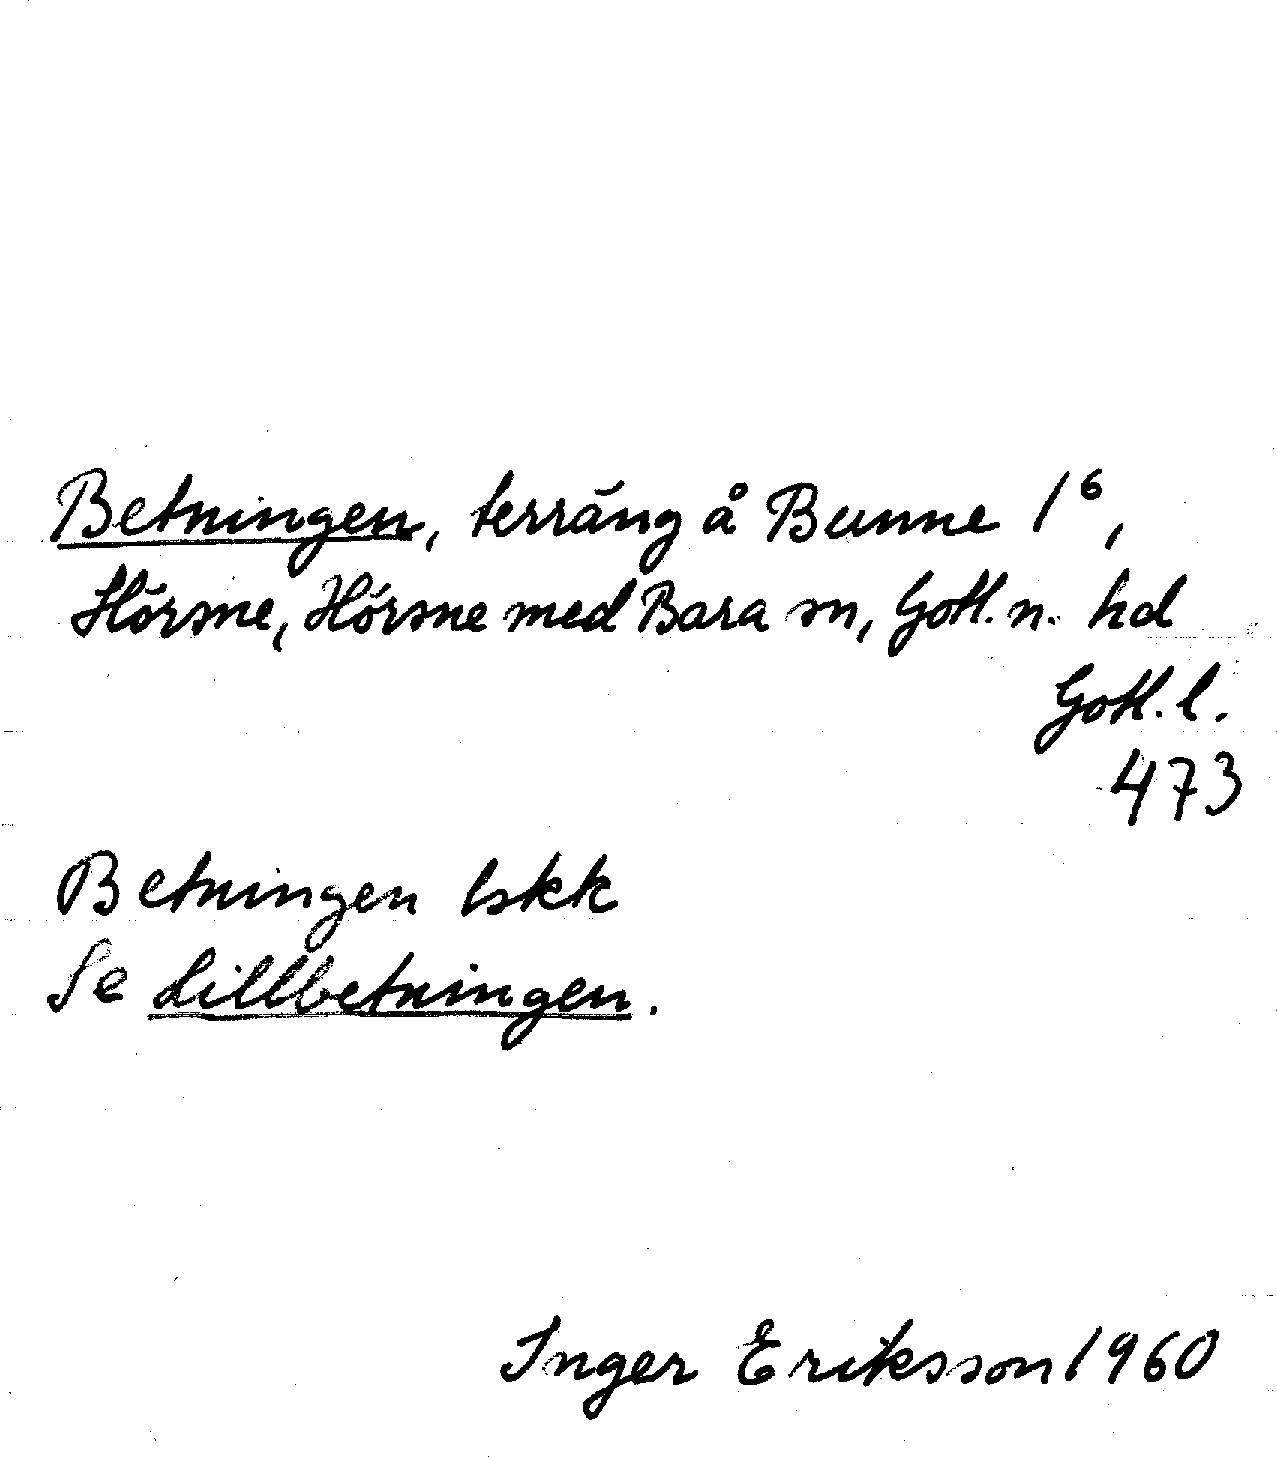 Betningen, terräng å Bunne 1⁶,
Hörsne, Hörsne med Bara sn, Gotl. n. hd
Gotl. l.
473
Betningen lskk
Se Lillbetningen.
Inger Eriksson 1960